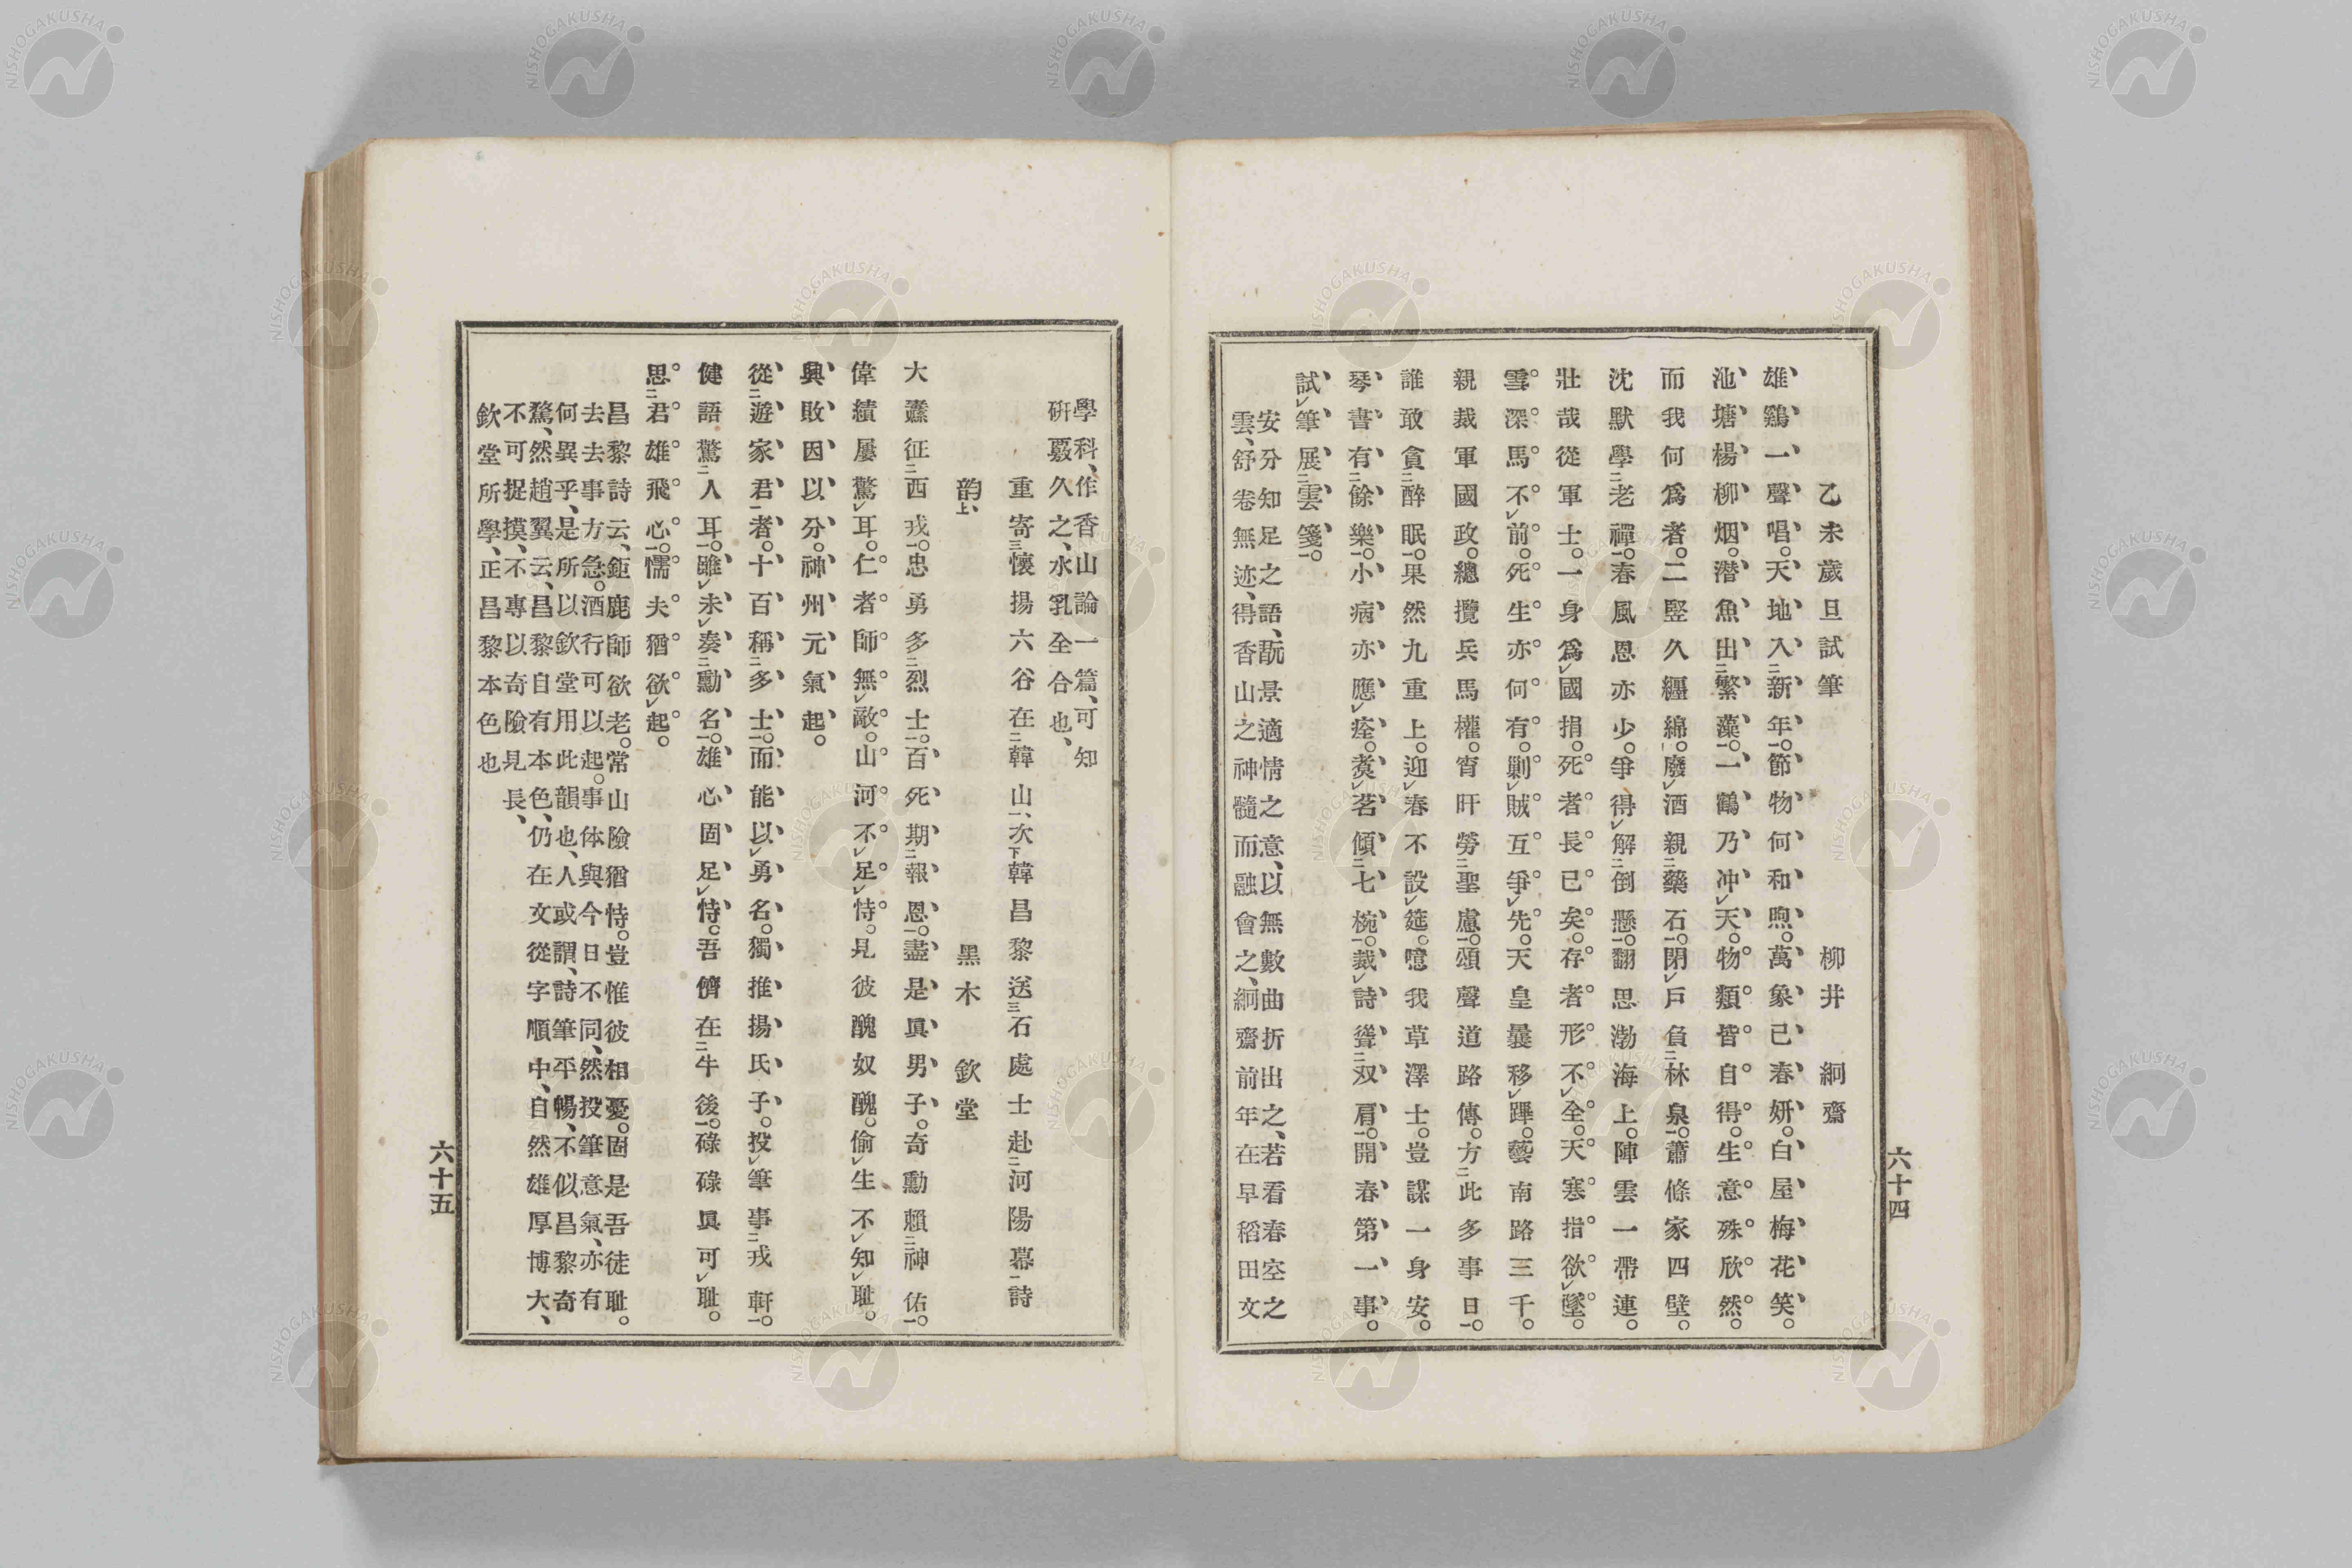 乙未歲旦試筆　柳井絅齋
雄鷄一聲唱。天地入二新年一。節物何和煦。萬象已春妍。白屋梅花笑。
池塘楊柳烟。潛魚出二繁藻一。一鶴乃冲レ天。物類皆自得。生意殊欣然。
而我何爲者。二竪久纒綿。廢レ酒親二藥石一。閉レ戸負二林泉一。蕭條家四壁。
沈默學二老禪一。春風恩亦少。爭得レ解二倒懸一。翻思渤海上。陣雲一帶連。
壯哉從軍士。一身爲レ國捐。死者長已矣。存者形不レ全。天寒指欲レ墜。
雪深馬不レ前。死生亦何有。剿レ賊互爭レ先。天皇曩移レ蹕。藝南路三千。
親裁軍國政。總攬兵馬權。宵旰勞二聖慮一。頌聲道路傳。方二此多事日一。
誰敢貪二醉眠一。果然九重上。迎レ春不レ設レ筵。噫我草澤士。豈謀一身安。
琴書有二餘樂一。小病亦應レ痊。煑レ茗傾二七椀一。裁レ詩聳二双肩一。開春第一事。
試レ筆展二雲箋一。
安分知足之語、翫景適情之意、以無數曲折出之、若看春空之
雲、舒卷無迹、得香山之神髓而融會之、絅齋前年在早稻田文
六十四
學科、作香山論一篇、可知
硏覈久之、水乳全合也、
重寄三懷揚六谷在二韓山一、次下韓昌黎送三石處士赴二河陽幕一詩
韵上、　黑木欽堂
大纛征二西戎一。忠勇多二烈士一。百死期二報恩一。盡是眞男子。奇勳賴二神佑一。
偉績屢驚レ耳。仁者師無レ敵。山河不レ足レ恃。見彼醜奴醜。偷レ生不レ知レ耻。
興敗因以分。神州元氣起。
從二遊家君一者。十百稱二多士一。而能以レ勇名。獨推揚氏子。投レ筆事二戎軒一。
健語驚二人耳一。雖レ未レ奏二勳名一。雄心固足レ恃。吾儕在二牛後一。碌碌眞可レ耻。
思二君雄飛心一。懦夫猶欲レ起。
昌黎詩云、鉅鹿師欲老。常山險猶恃。豈惟彼相憂。固是吾徒耻。
去去事方急。酒行可以起。事体與今日不同、然投筆意氣、亦有
何異乎、是所以欽堂用此韻也、人或謂、詩筆平暢、不似昌黎奇
驁、然趙翼云、昌黎自有本色、仍在文從字順中、自然雄厚博大、
不可捉摸、不專以奇險見長、
欽堂所學、正昌黎本色也
六十五
NISHOGAKUSHA